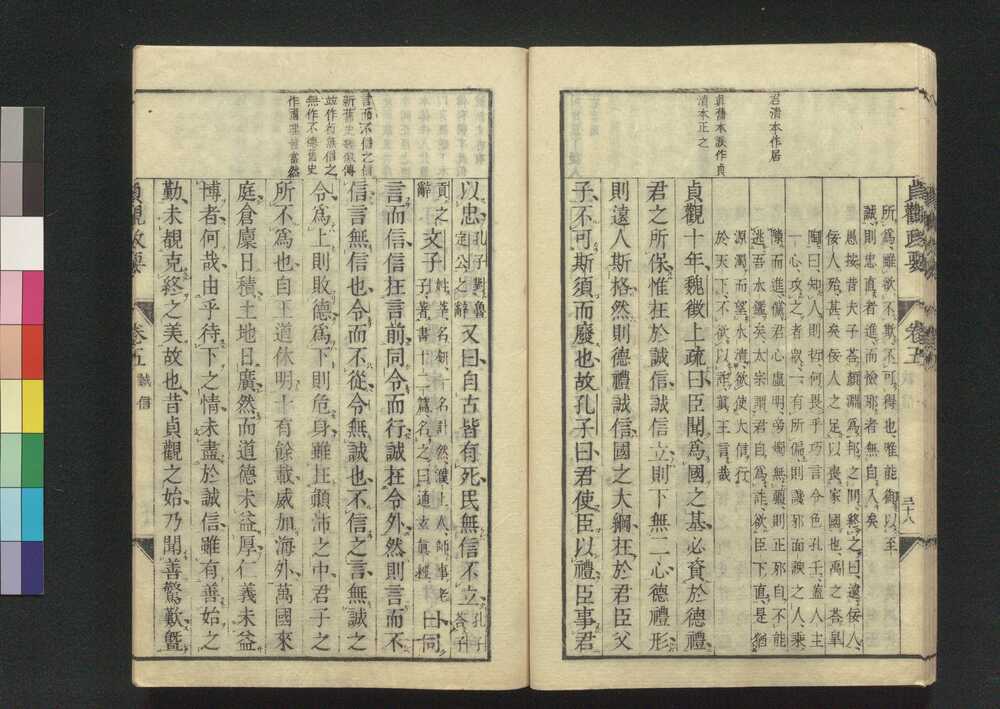 貞觀政要 卷五 三十八
君清本作居
清本正之
所爲雖欲不欺不可得也唯能御以至
誠則忠直者進而憸邪者無自入矣
愚按昔夫子荅顏淵爲邦之問終之曰遠佞人
佞人殆甚矣佞人之足以喪家國也禹之荅皐
陶曰知人則哲何畏乎巧言令色孔壬蓋人主
一心攻之者衆一有所偏則讒邪面諛之人乘
隙而進儻君心虛明旁燭無疆則正邪自不能
逃吾水鑑矣太宗謂君自爲詐欲臣下直是猶
源濁而望水清欲使大信行
於天下不欲以詐眞王言哉
貞觀十年魏徵上疏曰臣聞爲國之基必資於德禮
君之所保惟在於誠信誠信立則下無二心德禮形
則遠人斯格然則德禮誠信國之大綱在於君臣父
子不可斯須而廢也故孔子曰君使臣以禮臣事君
言而不信之信
作國理皆當然
以忠孔子對魯定公之辭又曰自古皆有死民無信不立孔子荅子
貢之辭文子姓辛名鈃一名計然濮上人師事老子著書十二篇名之曰通玄眞經曰同
言而信信在言前同令而行誠在令外然則言而不
信言無信也令而不從令無誠也不信之言無誠之
令爲上則敗德爲下則危身雖在顚沛之中君子之
所不爲也自王道休明十有餘載威加海外萬國來
庭倉廩日積土地日廣然而道德未益厚仁義未益
博者何哉由乎待下之情未盡於誠信雖有善始之
勤未覩克終之美故也昔貞觀之始乃聞善驚歎曁
貞觀政要 卷五 誠信